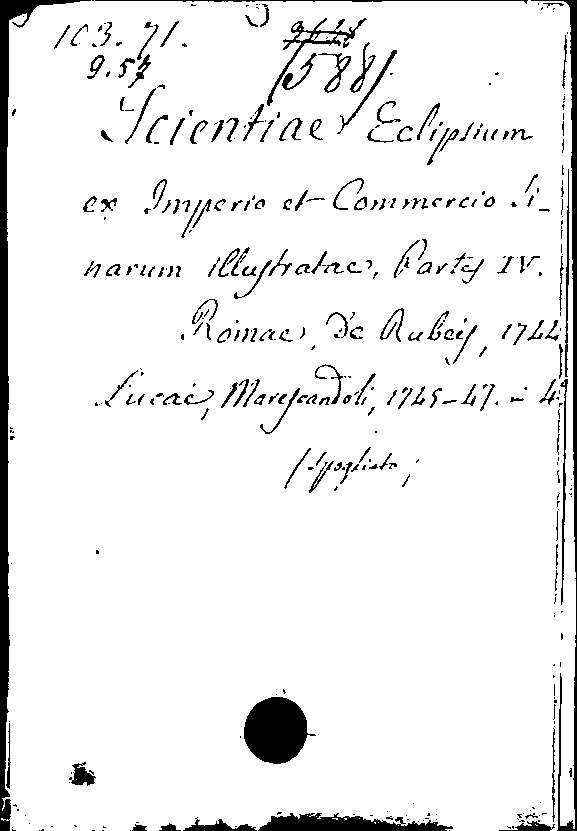 103. 71.
9. 57
(588)
Scientiae Eclipsium
ex Imperio et Commercio Si-
narum illustratae, Partes IV.
Romae, De Rubeis, 1744
Lucae, Marescandoli, 1745-47. in 4.°
(Spogliato)